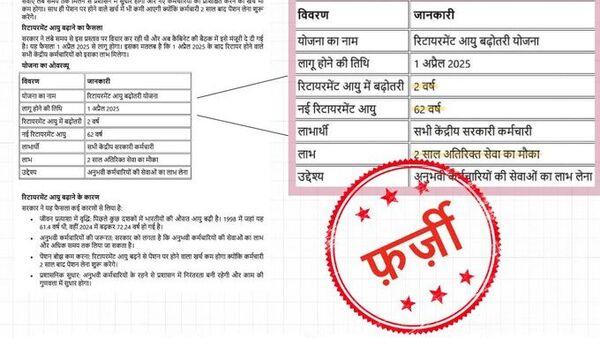 सेवाएं लंबे समय तक मिलने से प्रशासन में सुधार होगा और नए कर्मचारियों को प्रशिक्षित करने का खर्च भी
कम होगा। साथ ही पेंशन पर होने वाले खर्च में भी कमी आएगी क्योंकि कर्मचारी 2 साल बाद पेंशन लेना शुरू
करेंगे।
रिटायरमेंट आयु बढ़ाने का फैसला
सरकार ने लंबे समय से इस प्रस्ताव पर विचार कर रही थी और अब कैबिनेट की बैठक में इसे मंजूरी दे दी गई
है। यह फैसला 1 अप्रैल 2025 से लागू होगा। इसका मतलब है कि 1 अप्रैल 2025 के बाद रिटायर होने वाले
सभी केंद्रीय कर्मचारियों को इसका लाभ मिलेगा।
योजना का ओवरव्यू
विवरण जानकारी
योजना का नाम रिटायरमेंट आयु बढ़ोतरी योजना
लागू होने की तिथि 1 अप्रैल 2025
रिटायरमेंट आयु में बढ़ोतरी 2 वर्ष
नई रिटायरमेंट आयु 62 वर्ष
लाभार्थी सभी केंद्रीय सरकारी कर्मचारी
लाभ 2 साल अतिरिक्त सेवा का मौका
उद्देश्य अनुभवी कर्मचारियों की सेवाओं का लाभ लेना
रिटायरमेंट आयु बढ़ाने के कारण
सरकार ने यह फैसला कई कारणों से लिया है:
• जीवन प्रत्याशा में वृद्धि: पिछले कुछ दशकों में भारतीयों की औसत आयु बढ़ी है। 1998 में जहां यह
61.4 वर्ष थी, वहीं 2024 में बढ़कर 72.24 वर्ष हो गई है।
• अनुभवी कर्मचारियों की जरूरत: सरकार को लगता है कि अनुभवी कर्मचारियों की सेवाओं का लाभ
और अधिक समय तक लिया जा सकता है।
• पेंशन बोझ कम करना: रिटायरमेंट आयु बढ़ने से पेंशन पर होने वाला खर्च कम होगा क्योंकि कर्मचारी
2 साल बाद पेंशन लेना शुरू करेंगे।
• प्रशासनिक सुधार: अनुभवी कर्मचारियों के रहने से प्रशासन में निरंतरता बनी रहेगी और काम की
गुणवत्ता में सुधार होगा।
विवरण जानकारी
योजना का नाम रिटायरमेंट आयु बढ़ोतरी योजना
लागू होने की तिथि 1 अप्रैल 2025
रिटायरमेंट आयु में बढ़ोतरी 2 वर्ष
नई रिटायरमेंट आयु 62 वर्ष
लाभार्थी सभी केंद्रीय सरकारी कर्मचारी
लाभ 2 साल अतिरिक्त सेवा का मौका
उद्देश्य अनुभवी कर्मचारियों की सेवाओं का लाभ लेना
फ़र्ज़ी